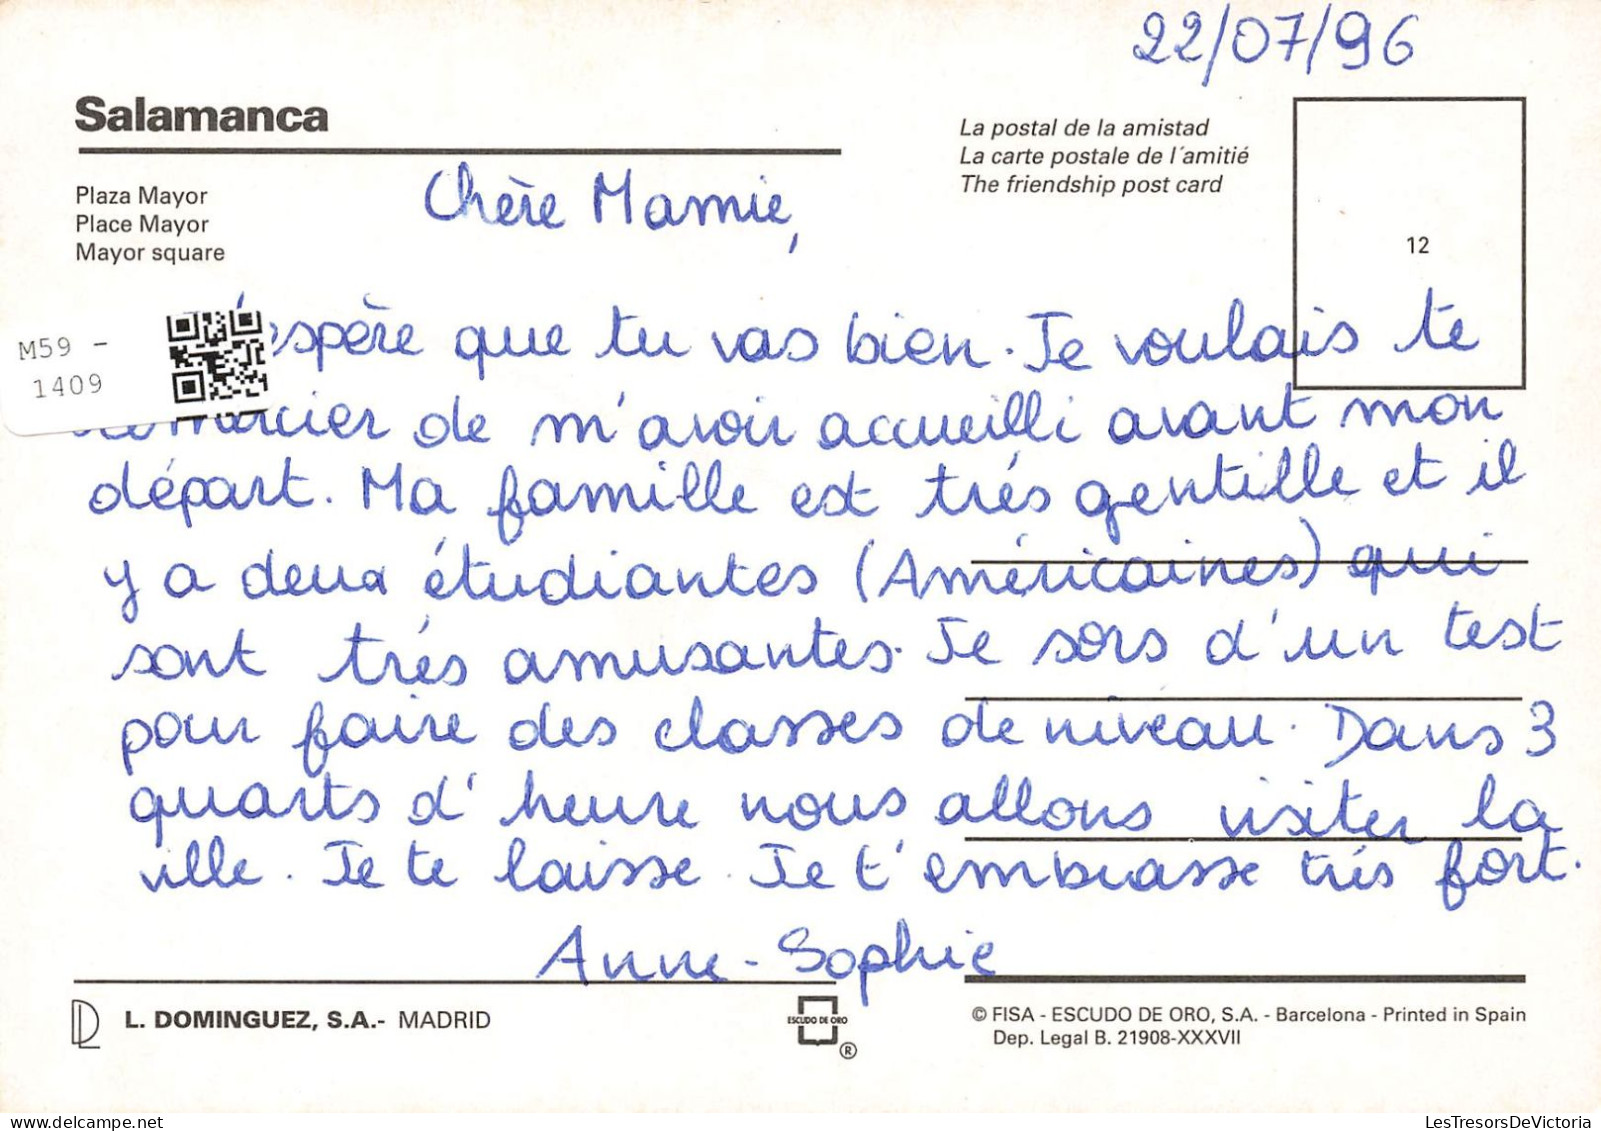 22/07/96
Salamanca
La postal de la amistad
La carte postale de l´amitié
The friendship post card
Plaza Mayor
Place Mayor
Mayor square
12
Chère Mamie,
M59 -
1409
J'espère que tu vas bien. Je voulais te
remercier de m'avoir accueilli avant mon
départ. Ma famille est trés gentille et il
y a deux étudiantes (Américaines) qui
sont trés amusantes. Je sors d'un test
pour faire des classes de niveau. Dans 3
quarts d'heure nous allons visiter la
ville. Je te laisse. Je t'embrasse trés fort.
Anne-Sophie
DL
L. DOMINGUEZ, S.A.- MADRID
ESCUDO DE ORO
®
© FISA - ESCUDO DE ORO, S.A. - Barcelona - Printed in Spain
Dep. Legal B. 21908-XXXVII
delcampe.net
LesTresorsDeVictoria